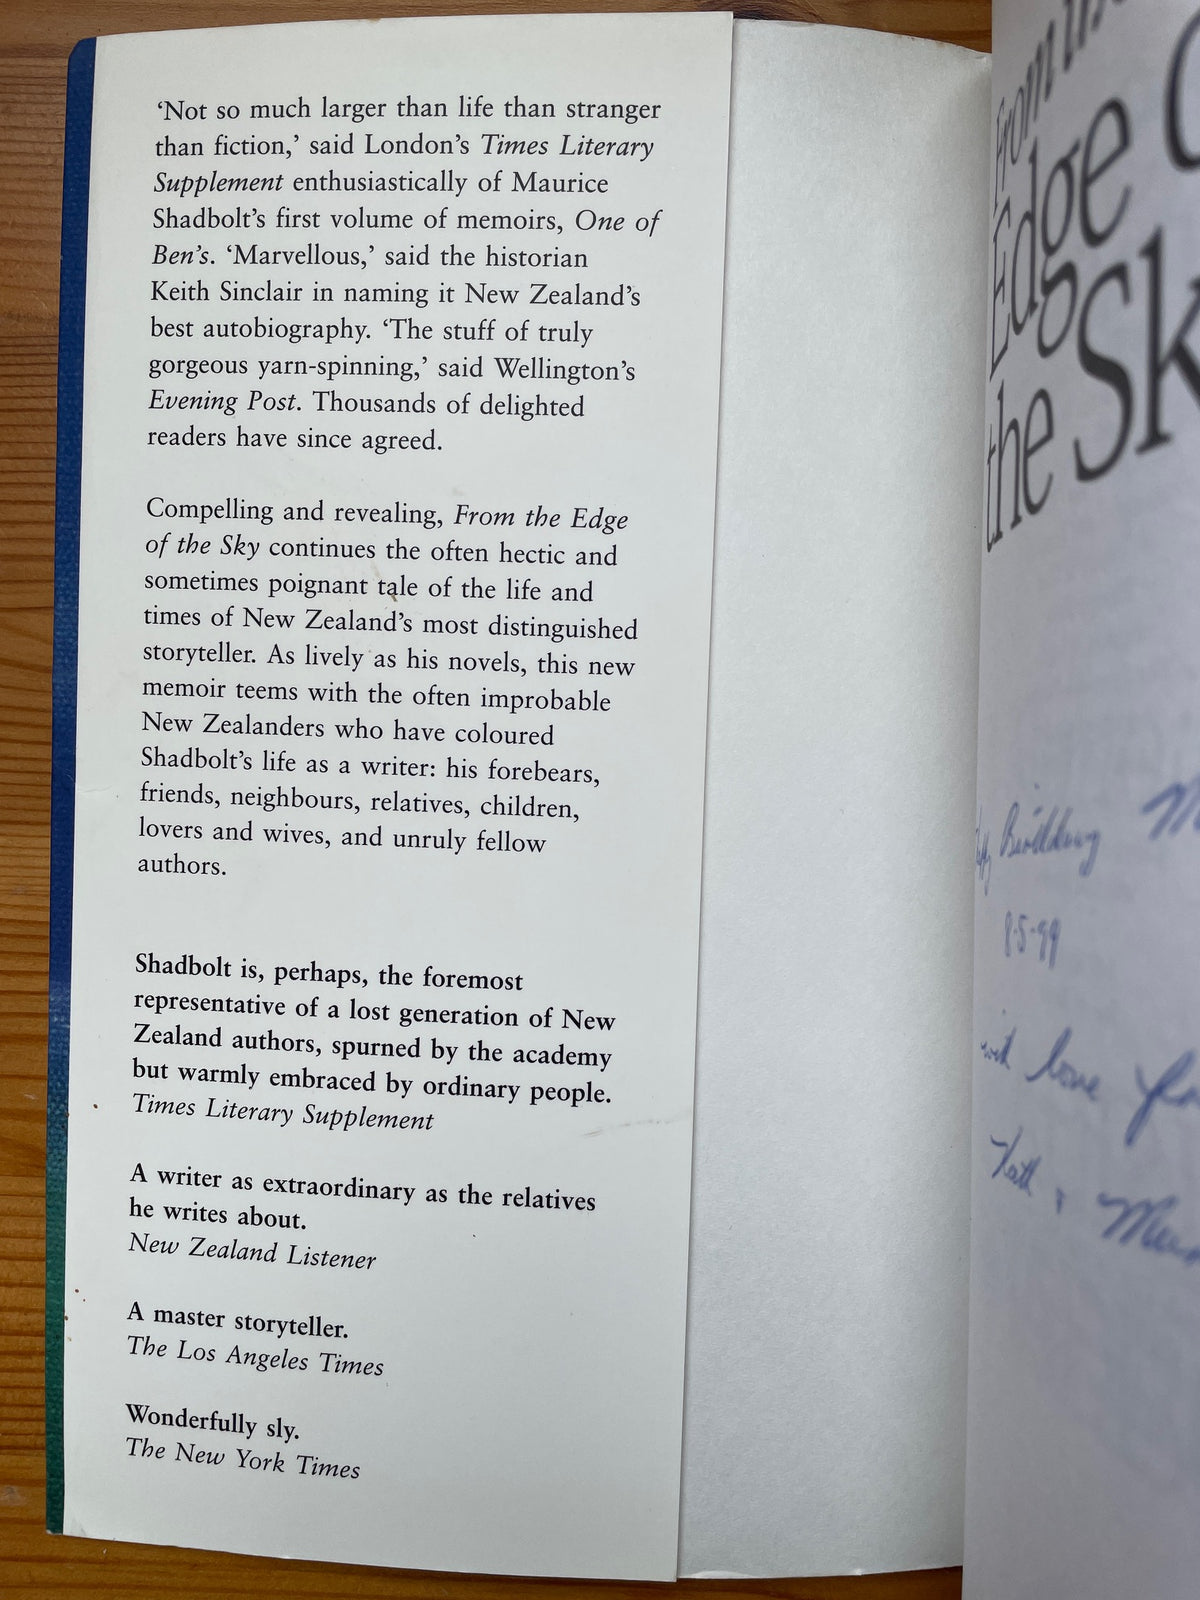 ‘Not so much larger than life than stranger
than fiction,’ said London’s Times Literary
Supplement enthusiastically of Maurice
Shadbolt’s first volume of memoirs, One of
Ben’s. ‘Marvellous,’ said the historian
Keith Sinclair in naming it New Zealand’s
best autobiography. ‘The stuff of truly
gorgeous yarn-spinning,’ said Wellington’s
Evening Post. Thousands of delighted
readers have since agreed.
Compelling and revealing, From the Edge
of the Sky continues the often hectic and
sometimes poignant tale of the life and
times of New Zealand’s most distinguished
storyteller. As lively as his novels, this new
memoir teems with the often improbable
New Zealanders who have coloured
Shadbolt’s life as a writer: his forebears,
friends, neighbours, relatives, children,
lovers and wives, and unruly fellow
authors.
Shadbolt is, perhaps, the foremost
representative of a lost generation of New
Zealand authors, spurned by the academy
but warmly embraced by ordinary people.
Times Literary Supplement
A writer as extraordinary as the relatives
he writes about.
New Zealand Listener
A master storyteller.
The Los Angeles Times
Wonderfully sly.
The New York Times
From
Edge
the Sk
8·5-99
with love
Kath &